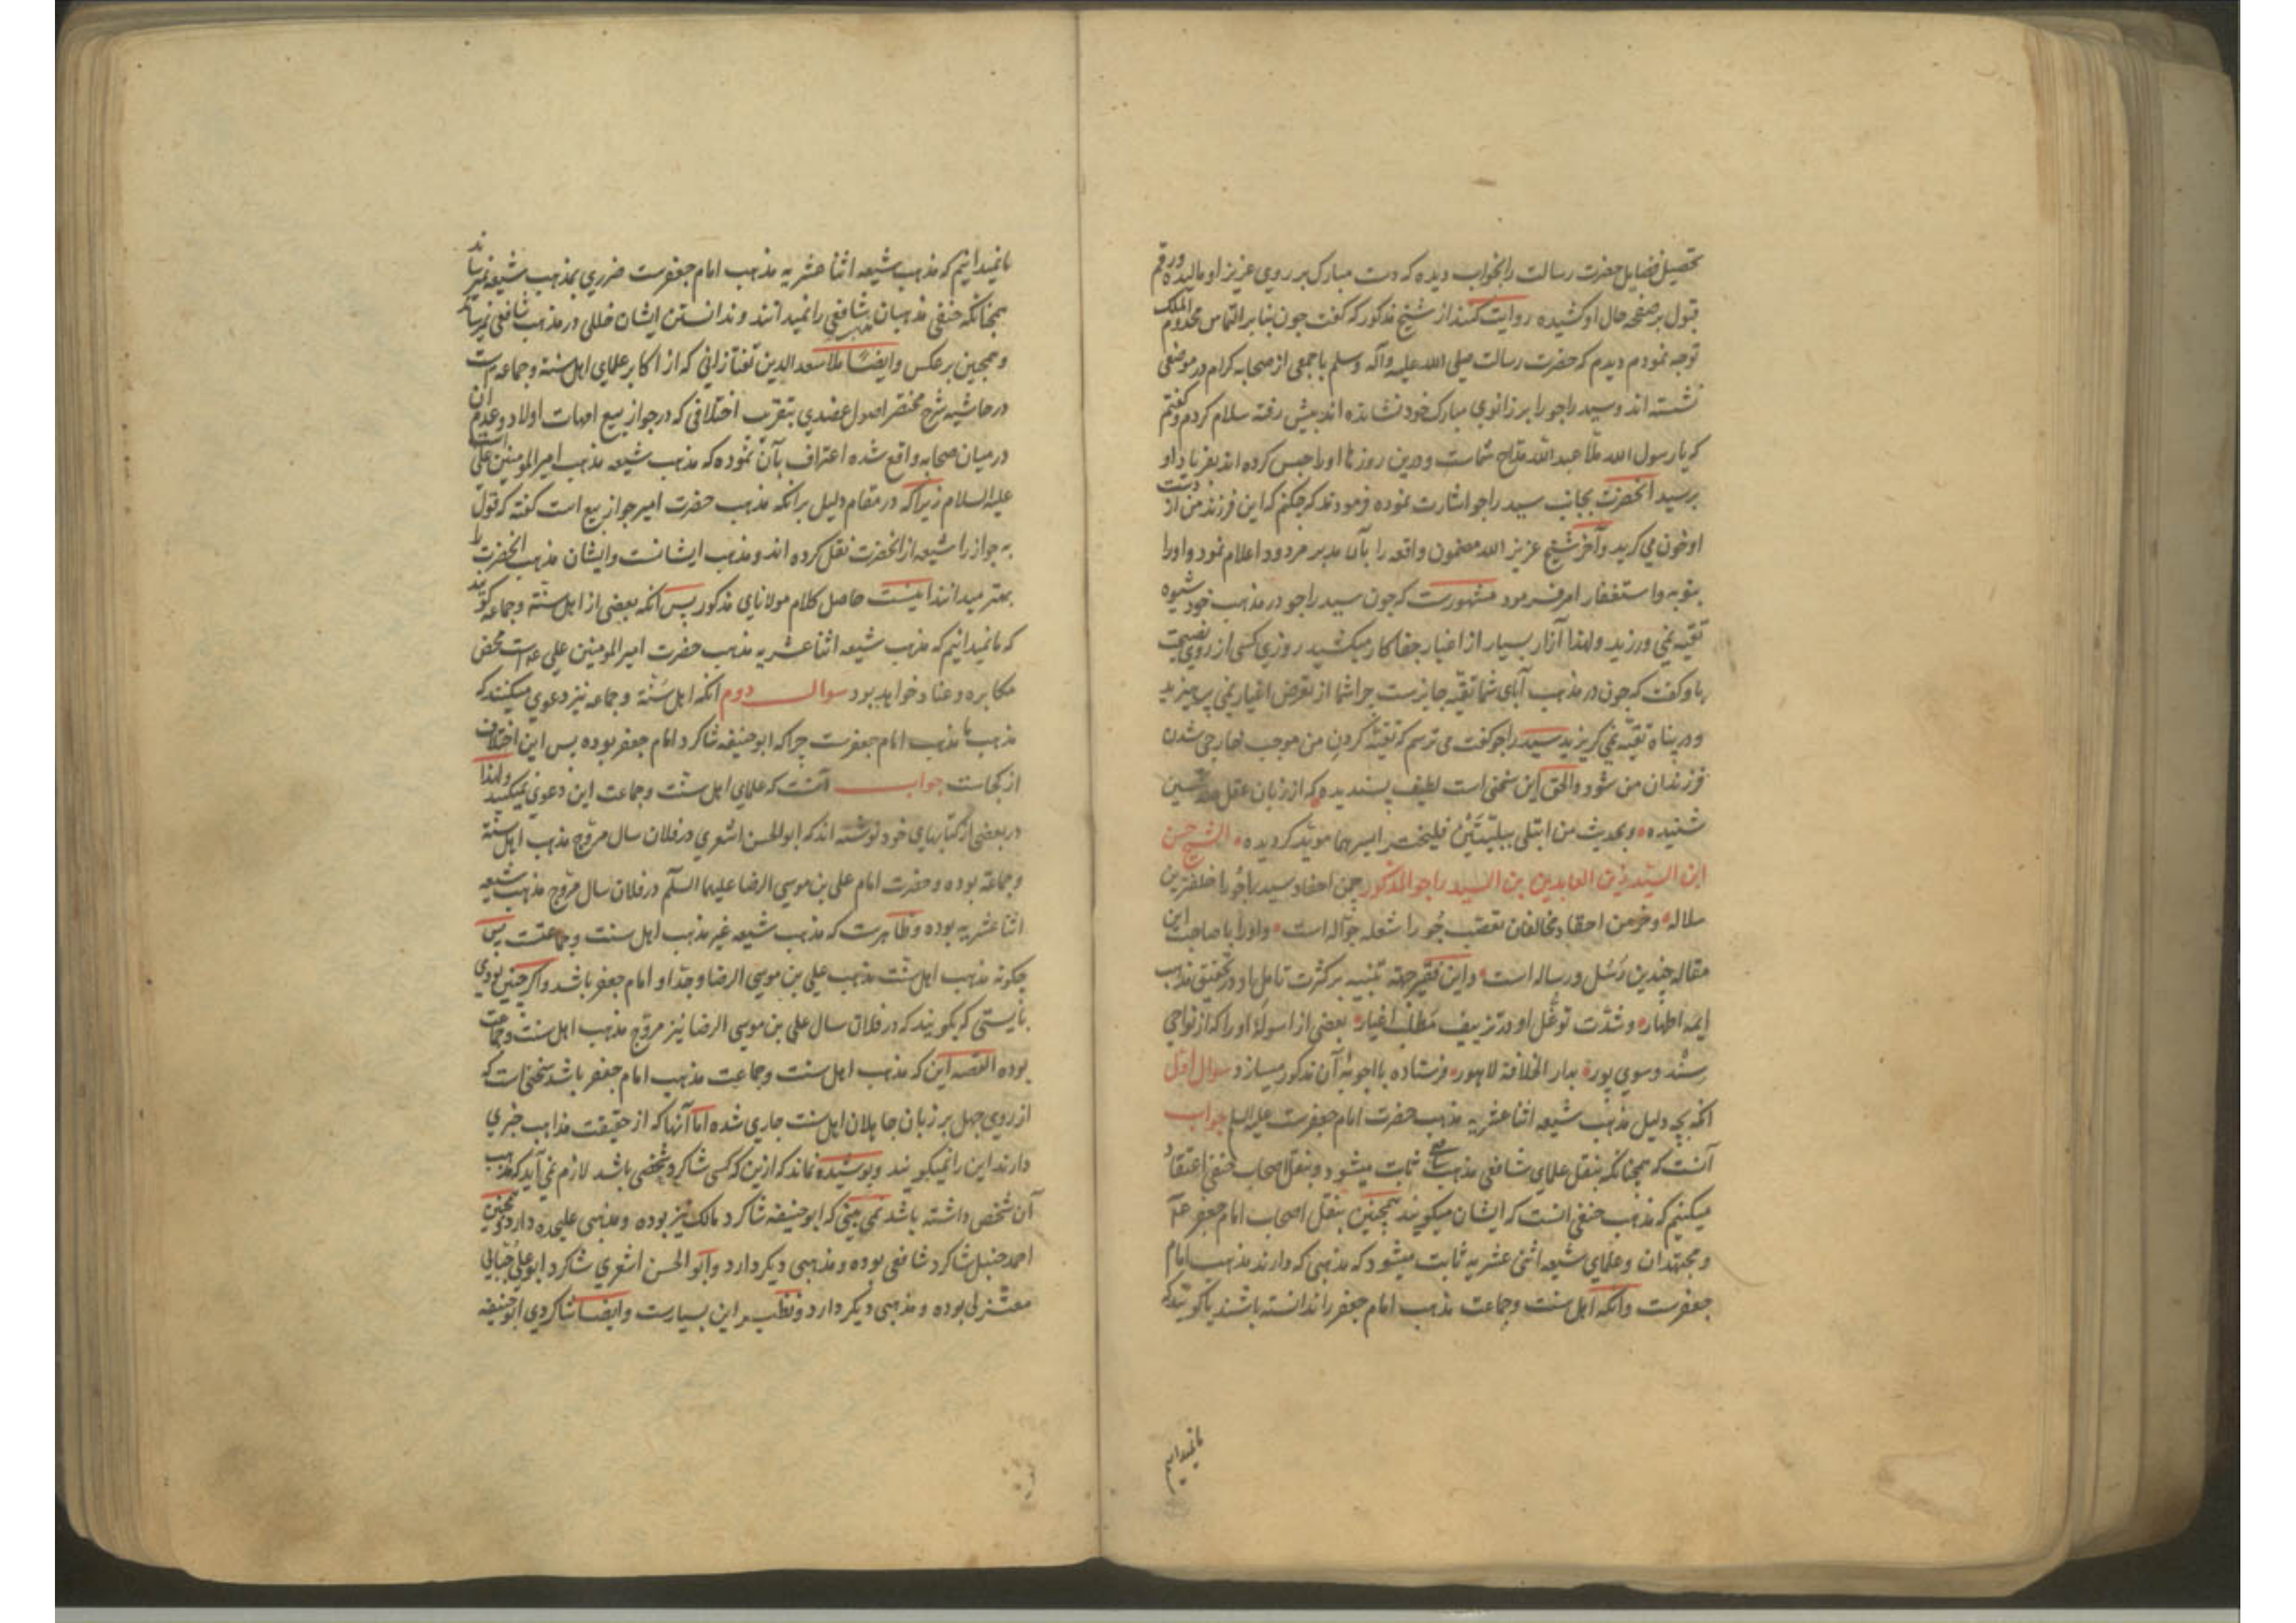 تحصیل فضایل حضرت رسالت را بخواب دیده که دست مبارک بر روی عزیز او مالیده و رقم
قبول بر صفحه حال او کشیده روایت کنند از شیخ مذکور که گفت چون بنا بر التماس مخدوم الملک
توجه نمودم دیدم که حضرت رسالت صلی الله علیه وآله وسلم با جمعی از صحابه کرام در موضعی
نشسته اند و سید راجو را بر زانوی مبارک خود نشانده اند پیش رفته سلام کردم و گفتم
که یا رسول الله ملا عبد الله مداح شماست و درین روزها او را حبس کرده اند بفریاد او
برسید آنحضرت بجانب سید راجو اشارت نموده فرمودند که چکنم که این فرزند من از دست
او خون می گرید وآخر شیخ عزیز الله مضمون واقعه را بآن مدبر مردود اعلام نمود و او را
بتوبه و استغفار امر فرمود مشهورست که چون سید راجو در مذهب خود شیوه
تقیه نمی ورزید ولهذا آزار بسیار از اغیار جفاکار میکشید روزی کسی از روی نصیحت
باو گفت که چون در مذهب آبای شما تقیّه جایزست چرا شما از تعرض اغیار نمی پرهیزید
و در پناه تقیّه نمی گریزید سید راجو گفت می ترسم که تقیّه کردن من موجب خارجی شدن
فرزندان من شود والحق این سخنی است لطیف پسندیده که از زبان عقل
شنیده و بحدیث من ابتلی ببلیّتَیْن فلیختر ایسرهما موید گردیده الشیخ حسن
ابن السیّد زین العابدین بن السید راجو المذکور چمن احفاد سید راجو را خلفترین
سلاله و خرمن احقاد مخالفان تعصب جُو را شعله جوّاله است و او را با صاحب این
مقاله چندین رُسُل و رساله است و این فقیر جهة تنبیه بر کثرت تامل او در تحقیق مذهب
ایمه اطهار و شدّت توغّل او در تزییف مَطْلَب اغیار بعضی از اسولهٔ او را که از نواحی
سند و سوی پوره بدار الخلافة لاهور فرستاده با اجوبهٔ آن مذکور میسازد سوال اول
آنکه بچه دلیل مذهب شیعه اثنا عشریه مذهب حضرت امام جعفرست علیه السلم جواب
آنست که همچنانکه بنقل علمای شافعی مذهب شافعی ثابت میشود و بنقل اصحاب حنفی اعتقاد
میکنیم که مذهب حنفی آنست که ایشان میگویند همچنین بنقل اصحاب امام جعفر ع
و مجتهدان و علمای شیعه اثنی عشریه ثابت میشود که مذهبی که دارند مذهب امام
جعفرست وآنکه اهل سنت و جماعت مذهب امام جعفر را ندانسته باشند یا گویند که
ما نمیدانیم
ما نمیدانیم که مذهب شیعه اثنا عشریه مذهب امام جعفرست ضرری بمذهب شیعه نمیرساند
همچنانکه حنفی مذهبان مذهب شافعی را نمیدانند و ندانستن ایشان خللی در مذهب شافعی نمیرساند
و همچنین بر عکس وایضا ملا سعد الدین تفتازانی که از اکابر علمای اهل سنة و جماعه است
در حاشیه شرح مختصر اصول عضدی بتقریب اختلافی که در جواز بیع امهات اولاد و عدم آن
در میان صحابه واقع شده اعتراف بآن نموده که مذهب شیعه مذهب امیر المومنین علی است
علیه السلام زیراکه در مقام دلیل برانکه مذهب حضرت امیر جواز بیع است گفته که قول
به جواز را شیعه از آنحضرت نقل کرده اند و مذهب ایشانست و ایشان مذهب آنحضرت را
بهتر میدانند اینست حاصل کلام مولانای مذکور پس آنکه بعضی از اهل سنّة و جماعه گویند
که ما نمیدانیم که مذهب شیعه اثنا عشریه مذهب حضرت امیر المومنین علی ع است محض
مکابره و عناد خواهد بود سوال دوم آنکه اهل سُنّة و جماعه نیز دعوی میکنند که
مذهب ما مذهب امام جعفرست چرا که ابو حنیفه شاگرد امام جعفر بوده پس این اختلاف
از کجاست جواب آنست که علمای اهل سنّت و جماعت این دعوی نمیکنند ولهذا
در بعضی از کتابهای خود نوشته اند که ابو الحسن اشعری در فلان سال مروّج مذهب اهل سنّة
و جماعة بوده و حضرت امام علی بن موسی الرضا علیهما السلّم در فلان سال مروّج مذهب شیعه
اثنا عشریه بوده و ظاهرست که مذهب شیعه غیر مذهب اهل سنت و جماعتست پس
چگونه مذهب اهل سنّت مذهب علی بن موسی الرضا و جدّ او امام جعفر باشد و اگر چنین بودی
بایستی که بگویند که در فلان سال علی بن موسی الرضا نیز مروّج مذهب اهل سنت و جماعت
بوده القصه این که مذهب اهل سنت و جماعت مذهب امام جعفر باشد سخنی است که
از روی جهل بر زبان جاهلان اهل سنت جاری شده اما آنها که از حقیقت مذاهب خبری
دارند این را نمیگویند و پوشیده نماند که ازین که کسی شاگرد شخصی باشد لازم نمی آید که مذهب
آن شخص داشته باشد نمی بینی که ابو حنیفه شاگرد مالک نیز بوده و مذهبی علیحده دارد و همچنین
احمد حنبل شاگرد شافعی بوده و مذهبی دیگر دارد و ابو الحسن اشعری شاگرد ابو علی جبّائی
معتزلی بوده و مذهبی دیگر دارد و نظیر این بسیارست وایضا شاگردی ابو حنیفه